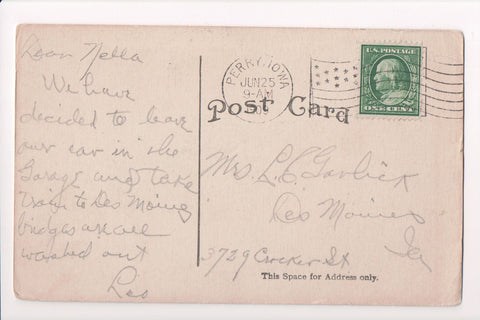 Dear Nella
We have
decided to leave
our car in the
Garage and take
train to Des Moines
bridges are all
washed out
Les
PERRY, IOWA
JUN 25
9-AM
190
U.S. POSTAGE
ONE CENT
Post Card
Mrs. L. C. Garlick
Des Moines
Ia
3729 Crocker St
This Space for Address only.